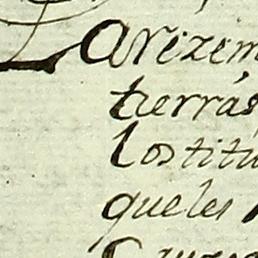 Larezem
tierrás
lostitu
queles